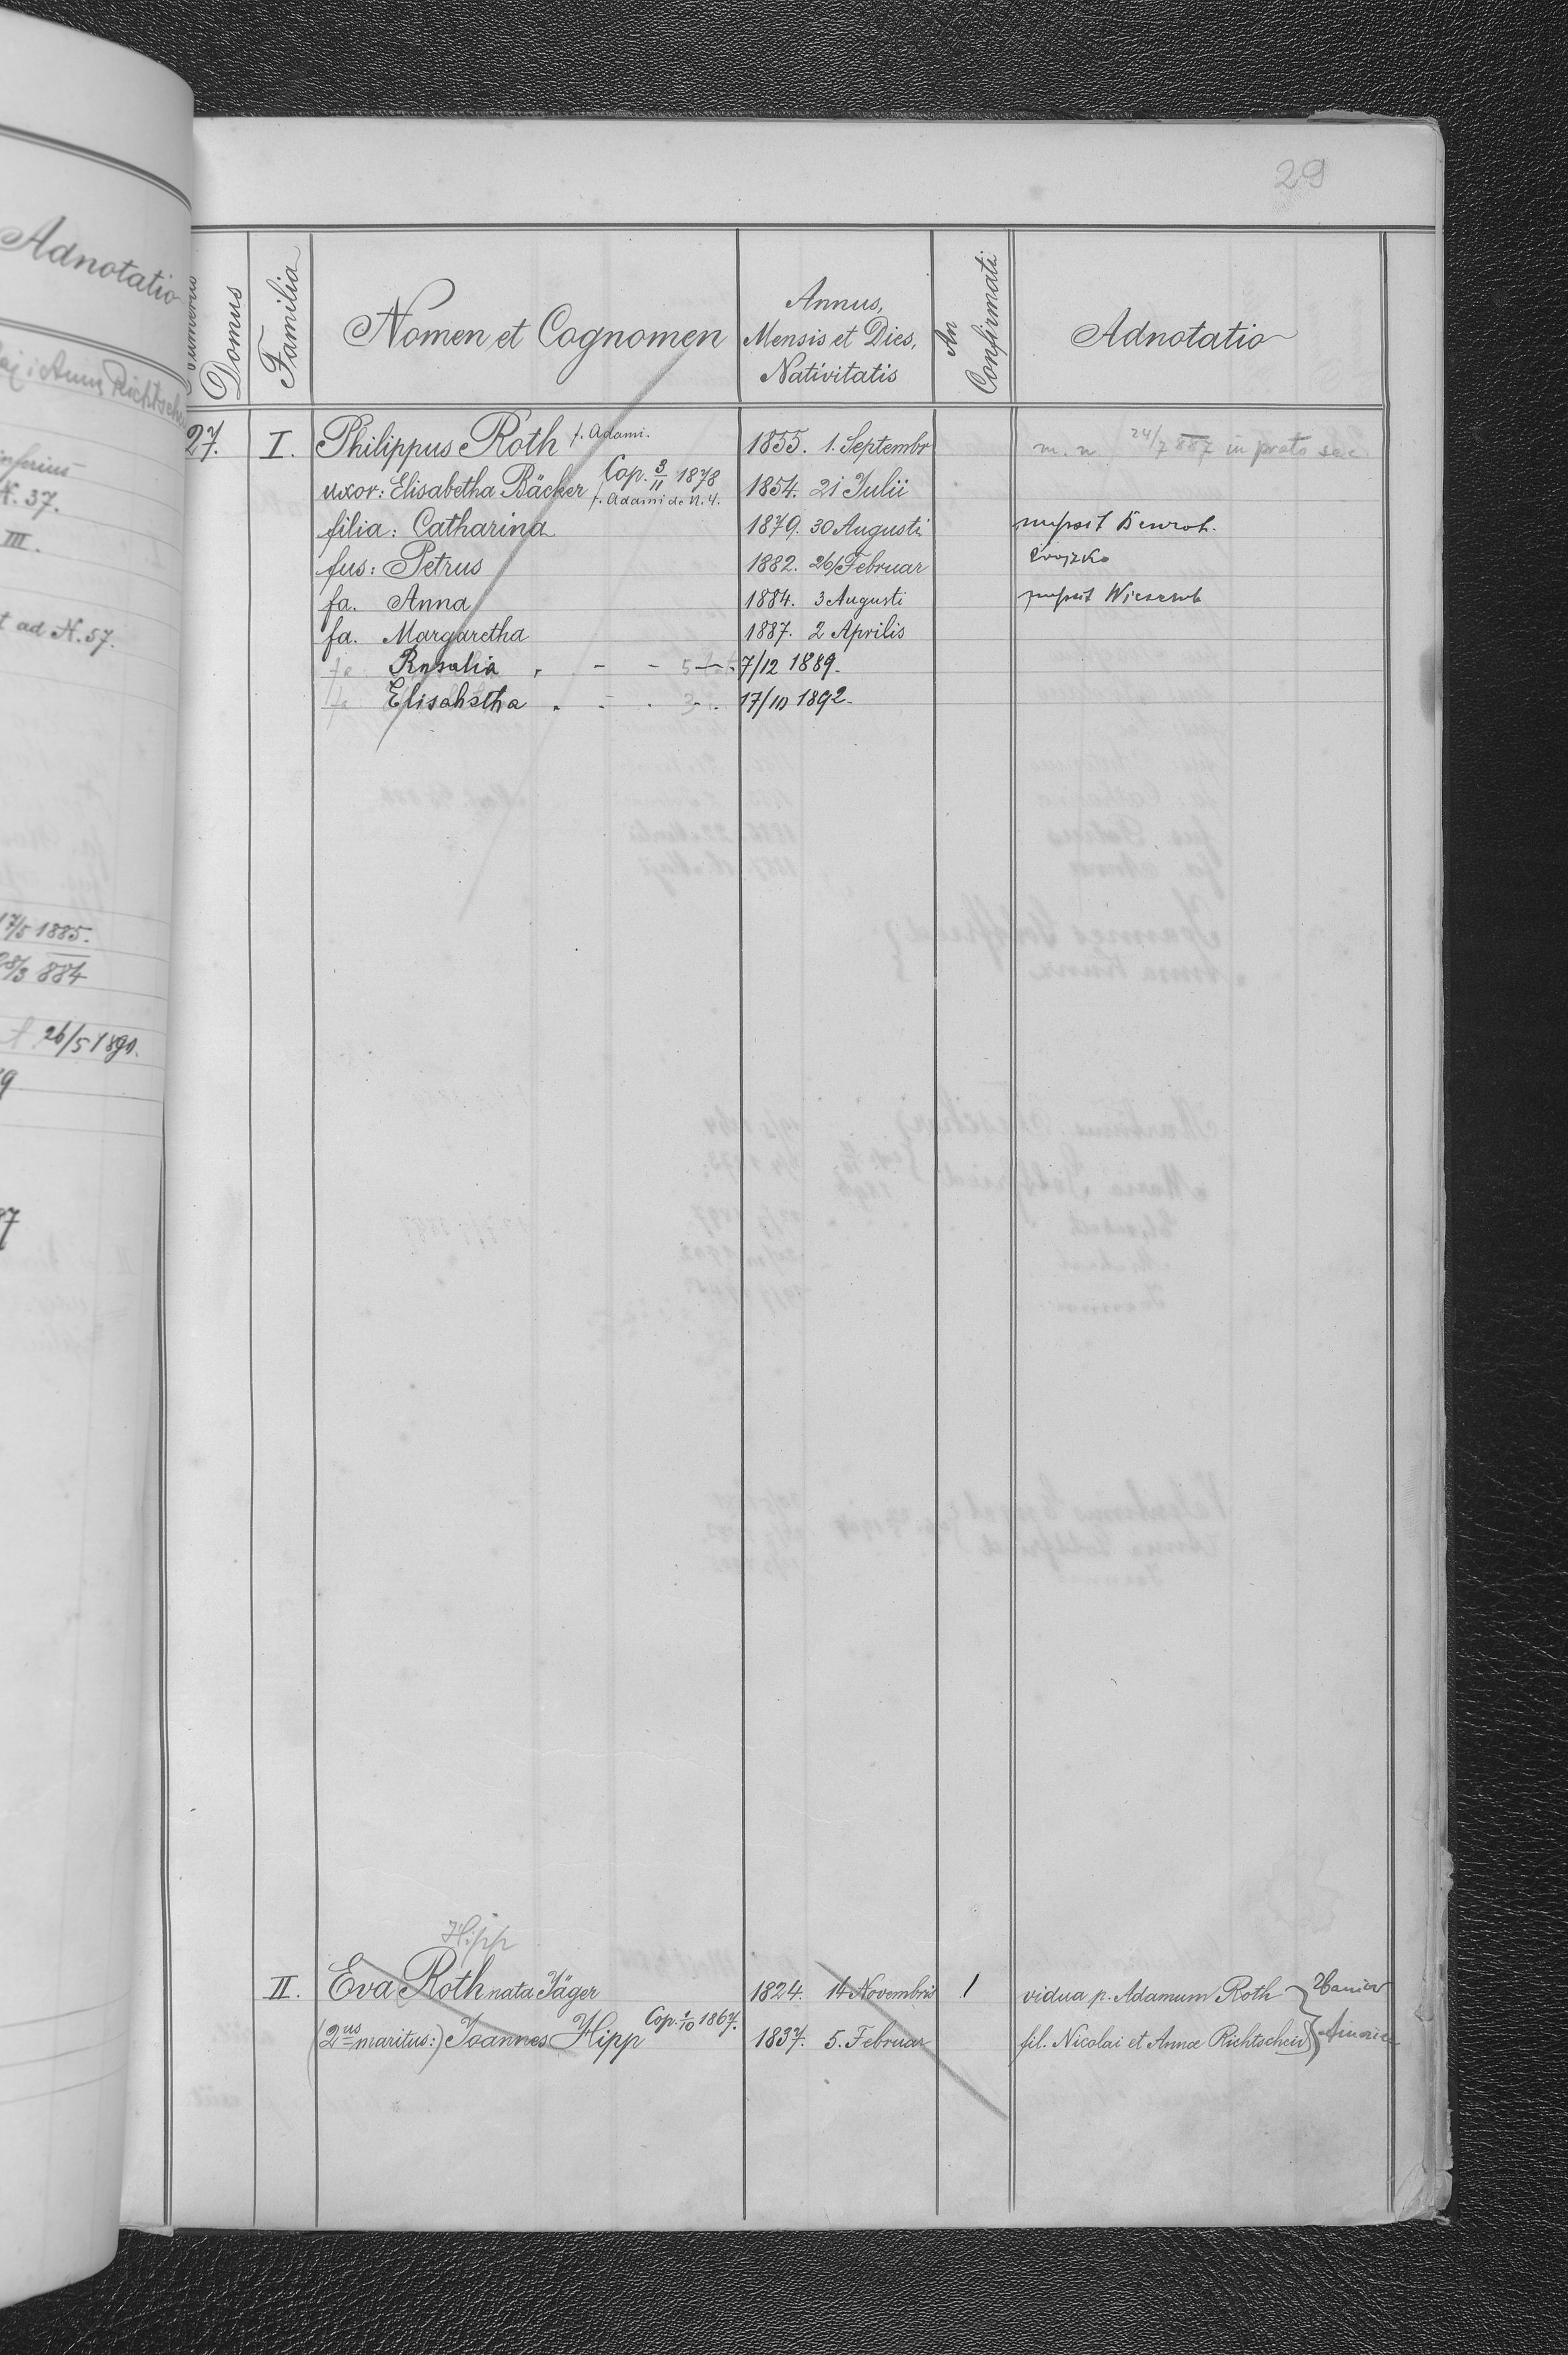 29
Adnotatio
Numerus Domus
Familia
Nomen et Cognomen
Annus, Mensis et Dies, Nativitatis
An Confirmati
Adnotatio
27. I. Philippus Roth f. Adami. 1855. 1. Septembr m. n. 24/7 887 in prato sec
uxor: Elisabetha Bäcker Cop. 3/11 1878 f. Adami de N. 4. 1854. 21 Julii
filia: Catharina 1879. 30 Augusti nupsit
fus: Petrus 1882. 26/ Februar
fa. Anna 1884. 3 Augusti nupsit
fa. Margaretha 1887. 2 Aprilis
fa Rosalia 7/12 1889.
fa Elisabetha 17/10 1892.
inferius
N. 37.
III.
t ad N. 57.
17/5 1885.
28/3 884
26/5 1890.
Hipp
II. Eva Roth nata Jäger 1824. 14 Novembris 1 vidua p. Adamum Roth
(2us maritus:) Joannes Hipp Cop. 1/10 1867. 1837. 5. Februar fil. Nicolai et Annæ Richtscheid